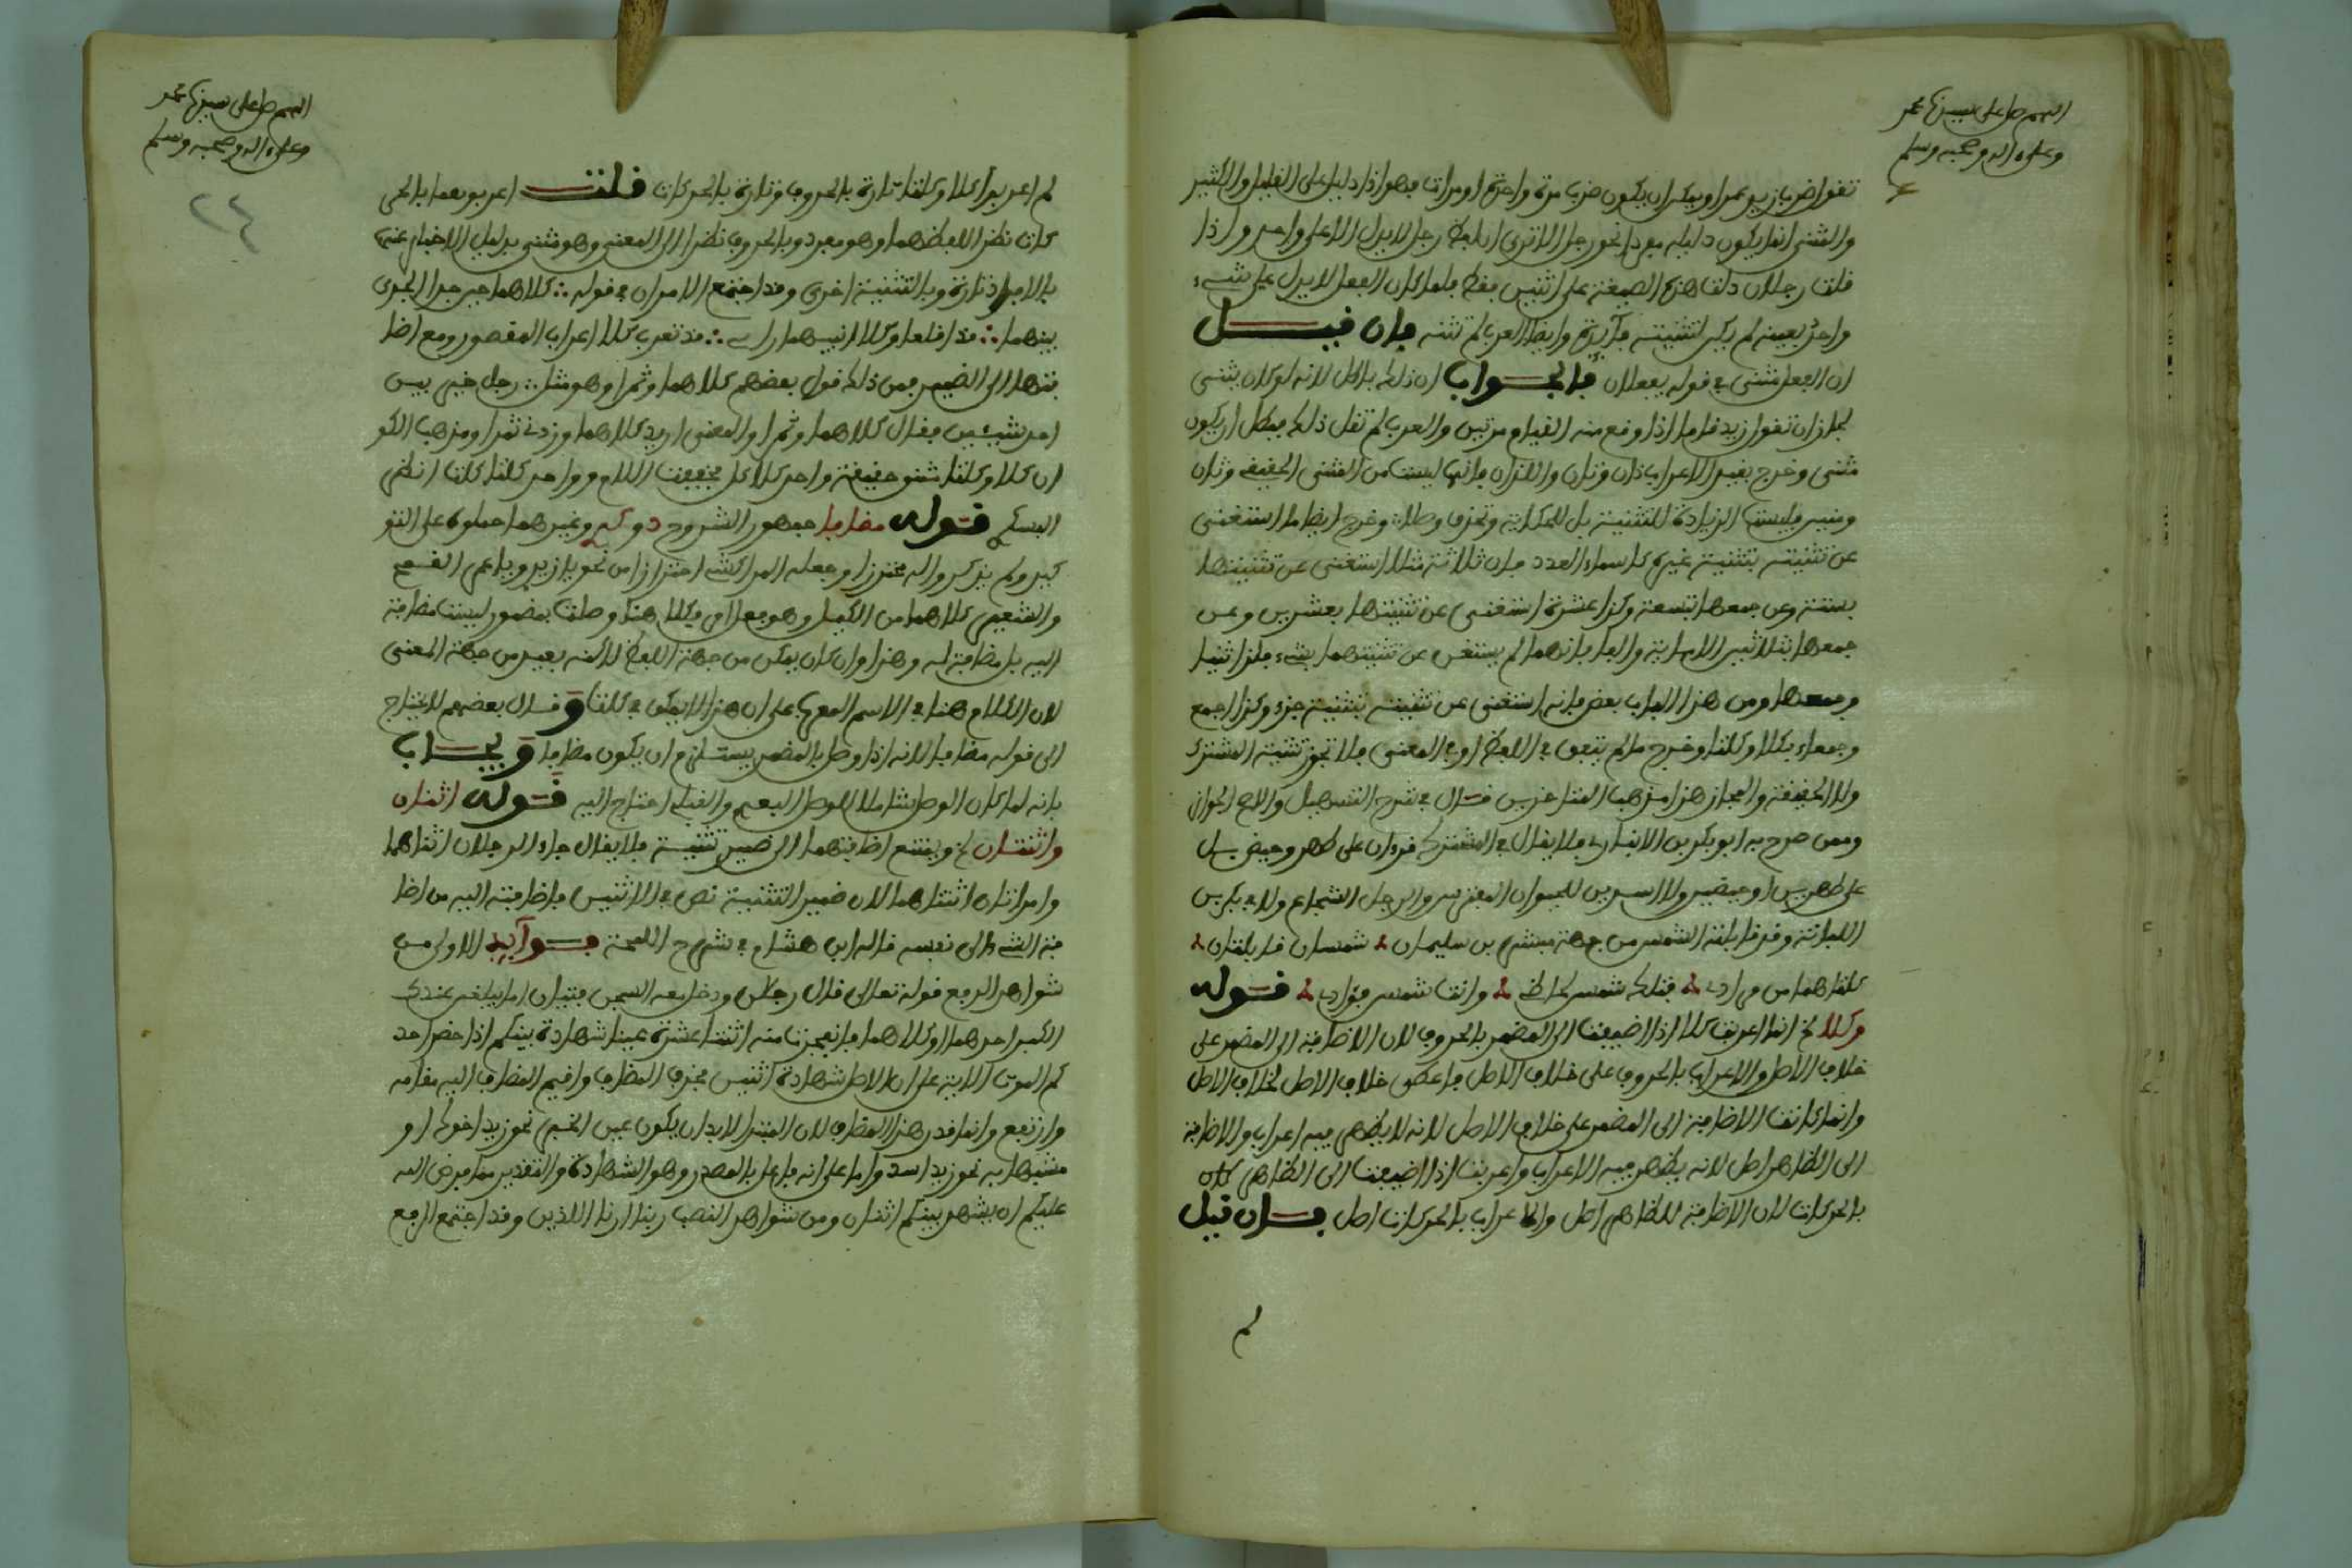 اللهم صل على سيدنا محمد
وعلى اله وصحبه وسلم
تقول ضرب زيد عمرا ويمكن ان يكون ضرب مرة واحدة او مرات فهو اذا دليل على القليل والكثير
والمثنى انما يكون دليله مفردا نحو رجل الا ترى ان لفظ رجل لا يدل الا على واحد واذا
قلت رجلان دلت هذه الصيغة على اثنين فقط فلما كان الفعل لا يدل على شيء
واحد بعينه لم يكن لتثنيته فائدة وايضا العرب لم تثنه فان قيل
ان الفعل مثنى في قوله يفعلان فالجواب ان ذلك باطل لانه لو كان يثنى
لجاز ان تقول زيد قاما اذا وقع منه القيام مرتين والعرب لم تقل ذلك فبطل ان يكون
مثنى وخرج بغير الاعراب ذان وتان واللذان فانها ليست من المثنى الحقيقي وثان
ومنين فليست الزيادة للتثنية بل للحكاية وتحذف وصلا وخرج ايضا ما استغنى
عن تثنيته بتثنية غيره كاسماء العدد فان ثلاثة مثلا استغنى عن تثنيتها
بستة وعن جمعها بتسعة وكذا عشرة استغنى عن تثنيتها بعشرين وعن
جمعها بثلاثين الا مائة والف فانهما لم يستغن عن تثنيتهما بشيء فلذا ثنيا
وجمعا ومن هذا الباب بعض فانه استغنى عن تثنيته بتثنية جزء وكذا اجمع
وجمعاء بكلا وكلتا وخرج ما لم يتفق في اللفظ او في المعنى فلا تجوز تثنية المشترك
ولا الحقيقة والمجاز هذا مذهب المتاخرين قال في شرح التسهيل والاصح الجواز
وممن صرح به ابو بكر بن الانباري فلا يقال في المشترك قرءان على طهر وحيض بل
على طهرين او حيضين ولا اسدين للحيوان المفترس والرجل الشجاع ولا
وقد قابلته الشمس من جهة مبشر بن سليمان شمسان قابلتان
كلتاهما من مرادي فتلك شمس وانت شمس فؤادي قوله
وكلا الخ انما اعربت كلا اذا اضيفت الى المضمر بالحروف لان الاضافة الى المضمر على
خلاف الاصل والاعراب بالحروف على خلاف الاصل فاعطي خلاف الاصل لخلاف الاصل
وانما كانت الاضافة الى المضمر على خلاف الاصل لانه لا يظهر فيه اعراب والاضافة
الى الظاهر اصل لانه يظهر فيه الاعراب واعربت اذا اضيفت الى الظاهر
بالحركات لان الاضافة للظاهر اصل والاعراب بالحركات اصل فان قيل
لم
اللهم صل على سيدنا محمد
وعلى اله وصحبه وسلم
٢٤
لم اعربوا كلا وكلتا تارة بالحروف وتارة بالحركات قلت اعربوهما بالحر
كات نظرا للفظهما وهو مفرد وبالحروف نظرا الى المعنى وهو مثنى بدليل الاخبار عنه
بالافراد تارة وبالتثنية اخرى وقد اجتمع الامران في قوله كلاهما حين جد الجري
بينهما قد اقلعا وكلا انفيهما رابي قد تعرب كلا اعراب المقصور ومع اضا
فتها الى الضمير فمن ذلك قول بعضهم كلاهما وتمرا وهو مثل رجل خير بين
احد شيئين فقال كلاهما وتمرا والمعنى اريد كلاهما وزدني تمرا ومذهب الكو
ان كلا وكلتا مثنى حقيقة واحد كلا كل فخففت اللام وواحد كلتا كلت انظر
قوله مضافا جمهور الشروح وغيرهما حملوه على التو
كيد ولم يذكروا له محترزا وجعله المراكشي احترازا من نحو
كلاهما من وهو فعل امر فكلا هنا وصلت بمضمر وليست مضافة
اليه بل مضافة له وهذا وان كان يمكن من جهة اللفظ لاكنه بعيد من جهة المعنى
لان الكلام هنا في الاسم المعرب على ان هذا لا يمكن في كلتا وقال بعضهم لا يحتاج
الى قوله مضافا لانه اذا وصل بالمضمر يستلزم ان يكون مضافا ويجاب
بانه لما كان الوصل شاملا للوصل البعدي والقبلي احتاج اليه قوله اثنان
واثنتان الخ ويمتنع اضافتهما الى ضمير تثنية فلا يقال جاء الرجلان اثناهما
وامراتان اثنتاهما لان ضمير التثنية نص في الاثنين فاضافته اليه من اضا
فة الشيء الى نفسه قاله ابن هشام في شرح اللمحة فوائد الاولى من
شواهد الرفع قوله تعالى قال رجلان ودخل معه السجن فتيان اما يبلغن عندك
الكبر احدهما او كلاهما فانفجرت منه اثنتا عشرة عينا شهادة بينكم اذا حضر احد
كم الموت الاية على ان الاصل شهادة اثنين فحذف المضاف واقيم المضاف اليه مقامه
وارتفع وانما قدر هذا المضاف لان المبتدا لابد ان يكون عين الخبر نحو زيد اخوك او
مشبها به نحو زيد اسد واما على انه فاعل بالمصدر وهو الشهادة والتقدير مما فرض الله
عليكم ان يشهد بينكم اثنان ومن شواهد النصب ربنا ارنا اللذين وقد اجتمع الرفع